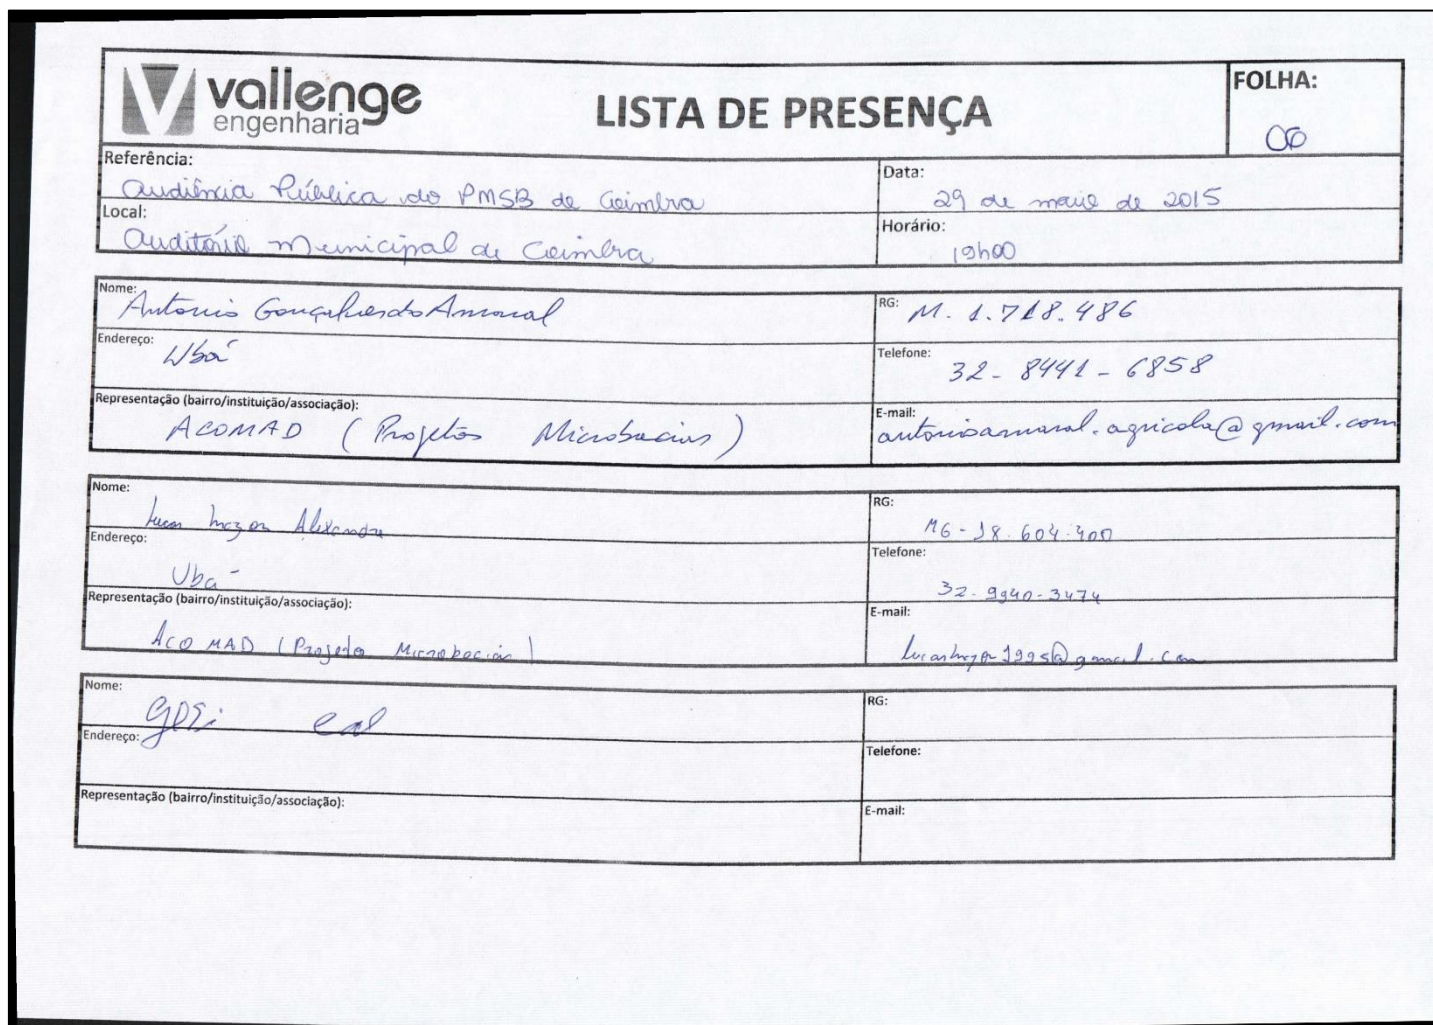 vallenge
engenharia
LISTA DE PRESENÇA
FOLHA:
06
Referência:
Audiência Pública do PMSB de Coimbra
Data:
29 de maio de 2015
Local:
Auditório Municipal de Coimbra
Horário:
19h00
Nome:
Antonio Gonçalves do Amaral
RG:
M. 1.718.486
Endereço:
Ubá
Telefone:
32- 8441-6858
Representação (bairro/instituição/associação):
ACOMAD (Projetos Microbacias)
E-mail:
antonioamaral.agricola@gmail.com
Nome:
Alexandre
RG:
MG-18.604.400
Endereço:
Ubá
Telefone:
32-9940-3474
Representação (bairro/instituição/associação):
ACOMAD (Projeto Microbacias)
E-mail:
Nome:
RG:
Endereço:
Telefone:
Representação (bairro/instituição/associação):
E-mail: